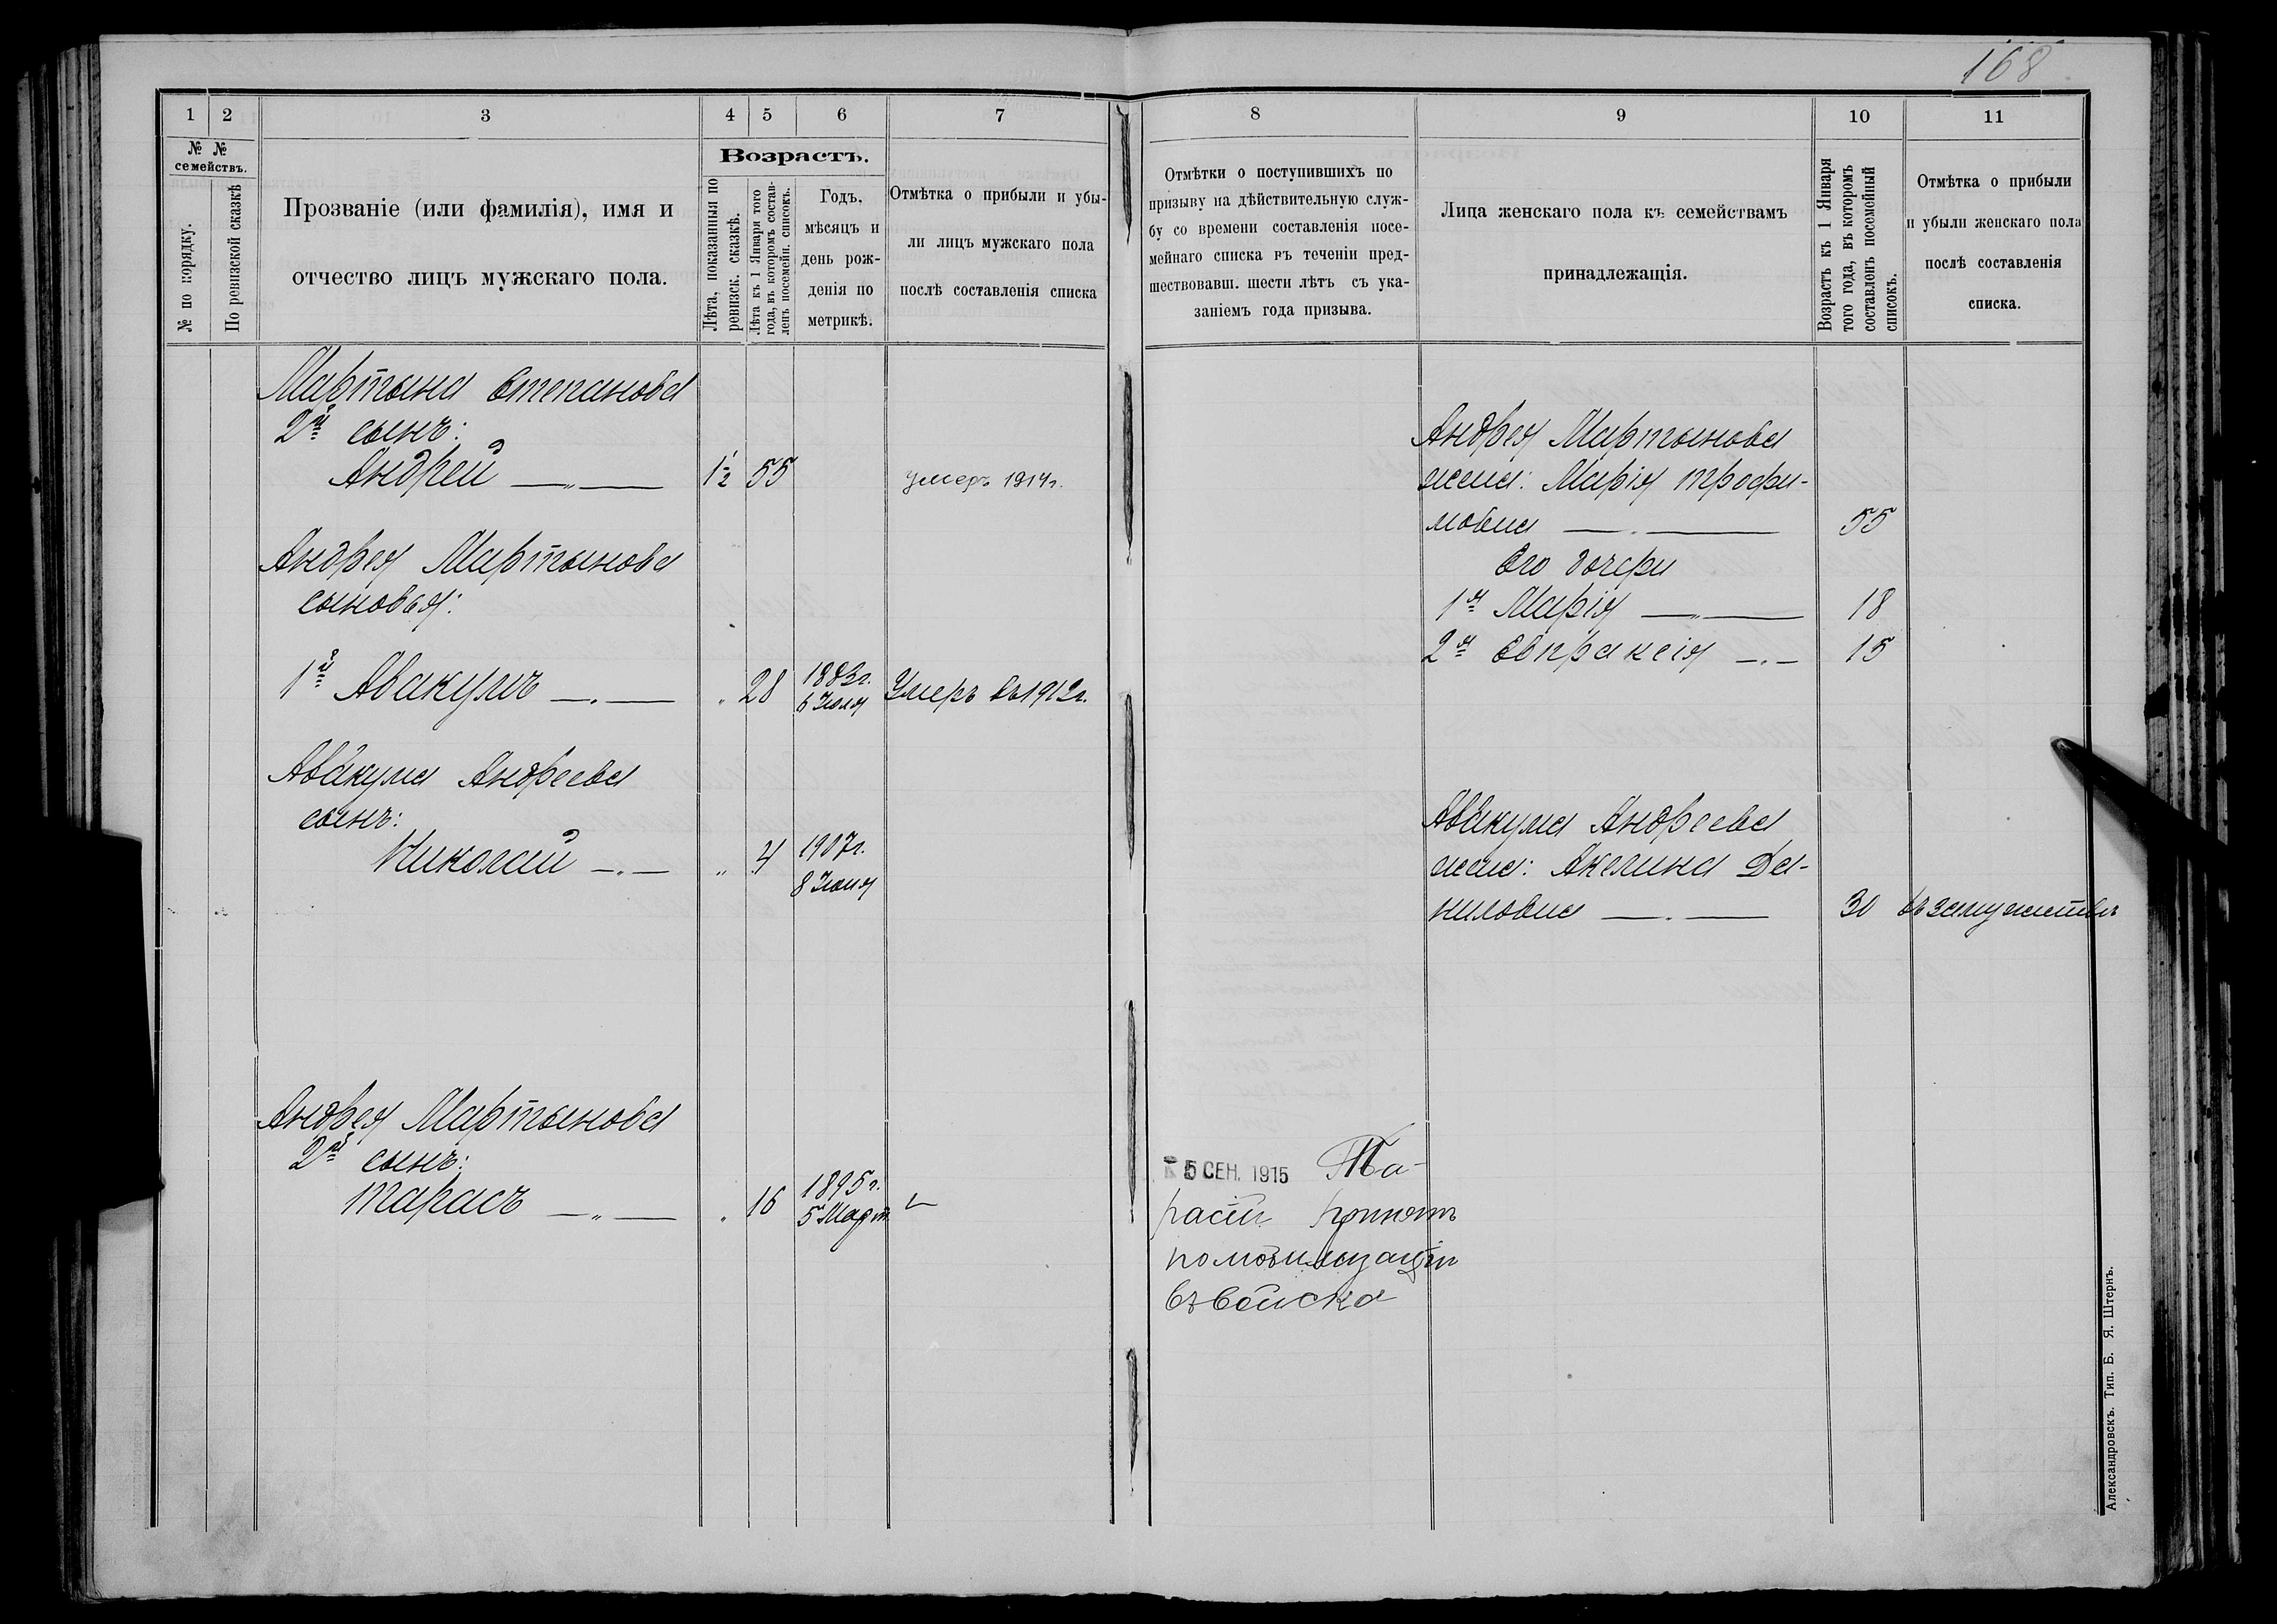 168
1 2 3 4 5 6 7 8 9 10 11
№ № семействъ.
№ по порядку.
По ревизской сказкѣ
Прозваніе (или фамилія), имя и
отчество лицъ мужскаго пола.
Возрастъ.
Лѣта, показанныя по
ревизск. сказкѣ.
Лѣта къ 1 Января того
года, въ которомъ состав-
ленъ посемейн. списокъ.
Годъ,
мѣсяцъ и
день рож-
денія по
метрикѣ.
Отмѣтка о прибыли и убы-
ли лицъ мужскаго пола
послѣ составленія списка
Отмѣтки о поступившихъ по
призыву на дѣйствительную служ-
бу со времени составленія посе-
мейнаго списка въ теченіи пред-
шествовавш. шести лѣтъ съ ука-
заніемъ года призыва.
Лица женскаго пола къ семействамъ
принадлежащія.
Возрастъ къ 1 Января
того года, въ которомъ
составленъ посемейный
списокъ.
Отмѣтка о прибыли
и убыли женскаго пола
послѣ составленія
списка.
Мартына Степанова
2й сынъ:
Андрей —„— 1½ 55 умеръ 1914г.
Андрея Мартынова
сыновья:
1й Авакумъ —„— „ 28 1883г.
6 Іюля Умеръ въ 1912г.
Авакума Андреева
сынъ:
Николай —„— „ 4 1907г.
8 Іюня
Андрея Мартынова
2й сынъ:
Тарасъ —„— „ 16 1895г.
5 Март.
5 СЕН. 1915 Та-
расъ принятъ
по мобилизаціи
въ войска
Андрея Мартынова
жена: Марія Трофи-
мовна —„— 55
Его дочери
1я Марія —„— 18
2я Евпраксія —„— 15
Авакума Андреева
жена: Акелина Да-
ниловна —„— 30 въ замужествѣ
Александровскъ. Тип. Б. Я. Штернъ.